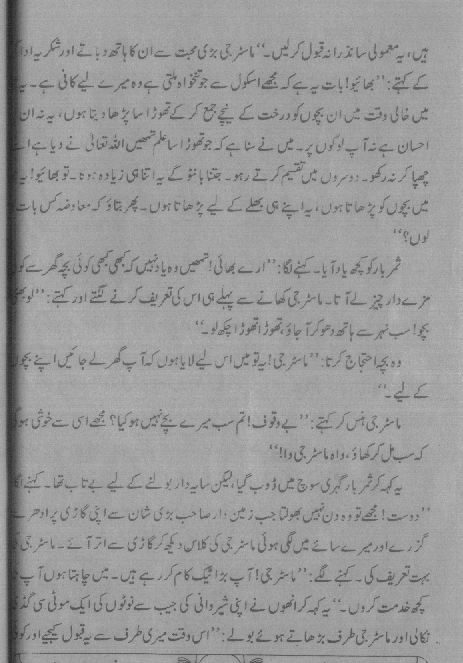 ہیں، یہ معمولی سا نذرانہ قبول کرلیں۔‘‘ ماسٹر جی بڑی محبت سے ان کا ہاتھ دباتے اور شکریہ ادا
کے کہتے: ’’بھائیو! بات یہ ہے کہ مجھے اسکول سے جو تنخواہ ملتی ہے وہ میرے لیے کافی ہے۔ یہ
میں خالی وقت میں ان بچوں کو درخت کے نیچے جمع کرکے تھوڑا سا پڑھا دیتا ہوں، یہ نہ ان
احسان ہے نہ آپ لوگوں پر۔ میں نے سنا ہے کہ جو تھوڑا سا علم تمھیں اللہ تعالیٰ نے دیا ہے اسے
چھپا کر نہ رکھو۔ دوسروں میں تقسیم کرتے رہو۔ جتنا بانٹو گے یہ اتنا ہی زیادہ ہوگا۔ تو بھائیو! یہ
میں بچوں کو پڑھاتا ہوں، یہ اپنے ہی بھلے کے لیے پڑھاتا ہوں۔ پھر بتاؤ کہ معاوضہ کس بات
لوں؟‘‘
ثمر بار کو کچھ یاد آیا۔ کہنے لگا: ’’ارے بھائی! تمھیں وہ یاد نہیں کہ کبھی کبھی کوئی بچہ گھر سے کوئی
مزے دار چیز لے آتا۔ ماسٹر جی کھانے سے پہلے ہی اس کی تعریف کرنے لگتے اور کہتے: ’’لو بھئی
بچو! سب نہر سے ہاتھ دھو کر آجاؤ، تھوڑا تھوڑا چکھ لو۔‘‘
وہ بچہ احتجاج کرتا: ’’ماسٹر جی! یہ تو میں اس لیے لایا ہوں کہ آپ گھر لے جائیں اپنے بچوں
کے لیے۔‘‘
ماسٹر جی ہنس کر کہتے: ’’بے وقوف! تم سب میرے بچے نہیں ہو کیا؟ مجھے اسی سے خوشی ہوگی
کہ سب مل کر کھاؤ، واہ ماسٹر جی وا!‘‘
یہ کہہ کر ثمر بار گہری سوچ میں ڈوب گیا، لیکن سایہ دار بولنے کے لیے بے تاب تھا۔ کہنے لگا
’’دوست! مجھے تو وہ دن نہیں بھولتا جب زمین دار صاحب بڑی شان سے اپنی گاڑی پر ادھر سے
گزرے اور میرے سائے میں لگی ہوئی ماسٹر جی کی کلاس دیکھ کر گاڑی سے اتر آئے۔ ماسٹر جی کی
بہت تعریف کی۔ کہنے لگے: ’’ماسٹر جی! آپ بڑا نیک کام کر رہے ہیں۔ میں چاہتا ہوں آپ
کچھ خدمت کروں۔‘‘ یہ کہہ کر انھوں نے اپنی شیروانی کی جیب سے نوٹوں کی ایک موٹی سی گڈی
نکالی اور ماسٹر جی طرف بڑھاتے ہوئے بولے: ’’اس وقت میری طرف سے یہ قبول کیجیے اور